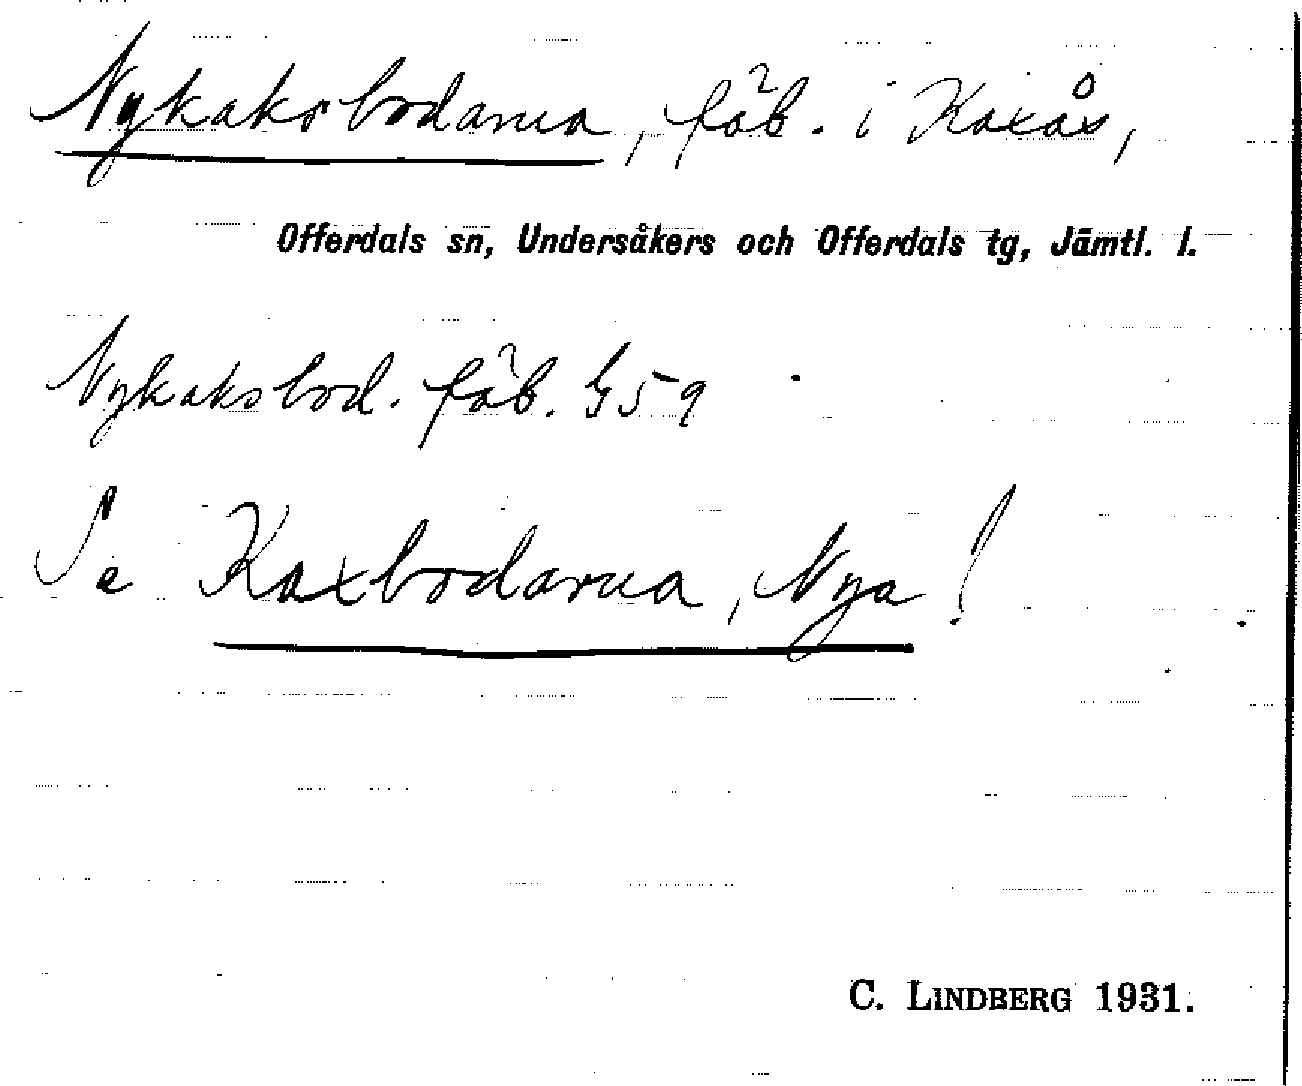 Nykaksbodarna, fäb. i Kaxås,
Offerdals sn, Undersåkers och Offerdals tg, Jämtl. l.
Nykaksbod. fäb. G59
Se Kaxbodarna, Nya!
C. LINDBERG 1931.